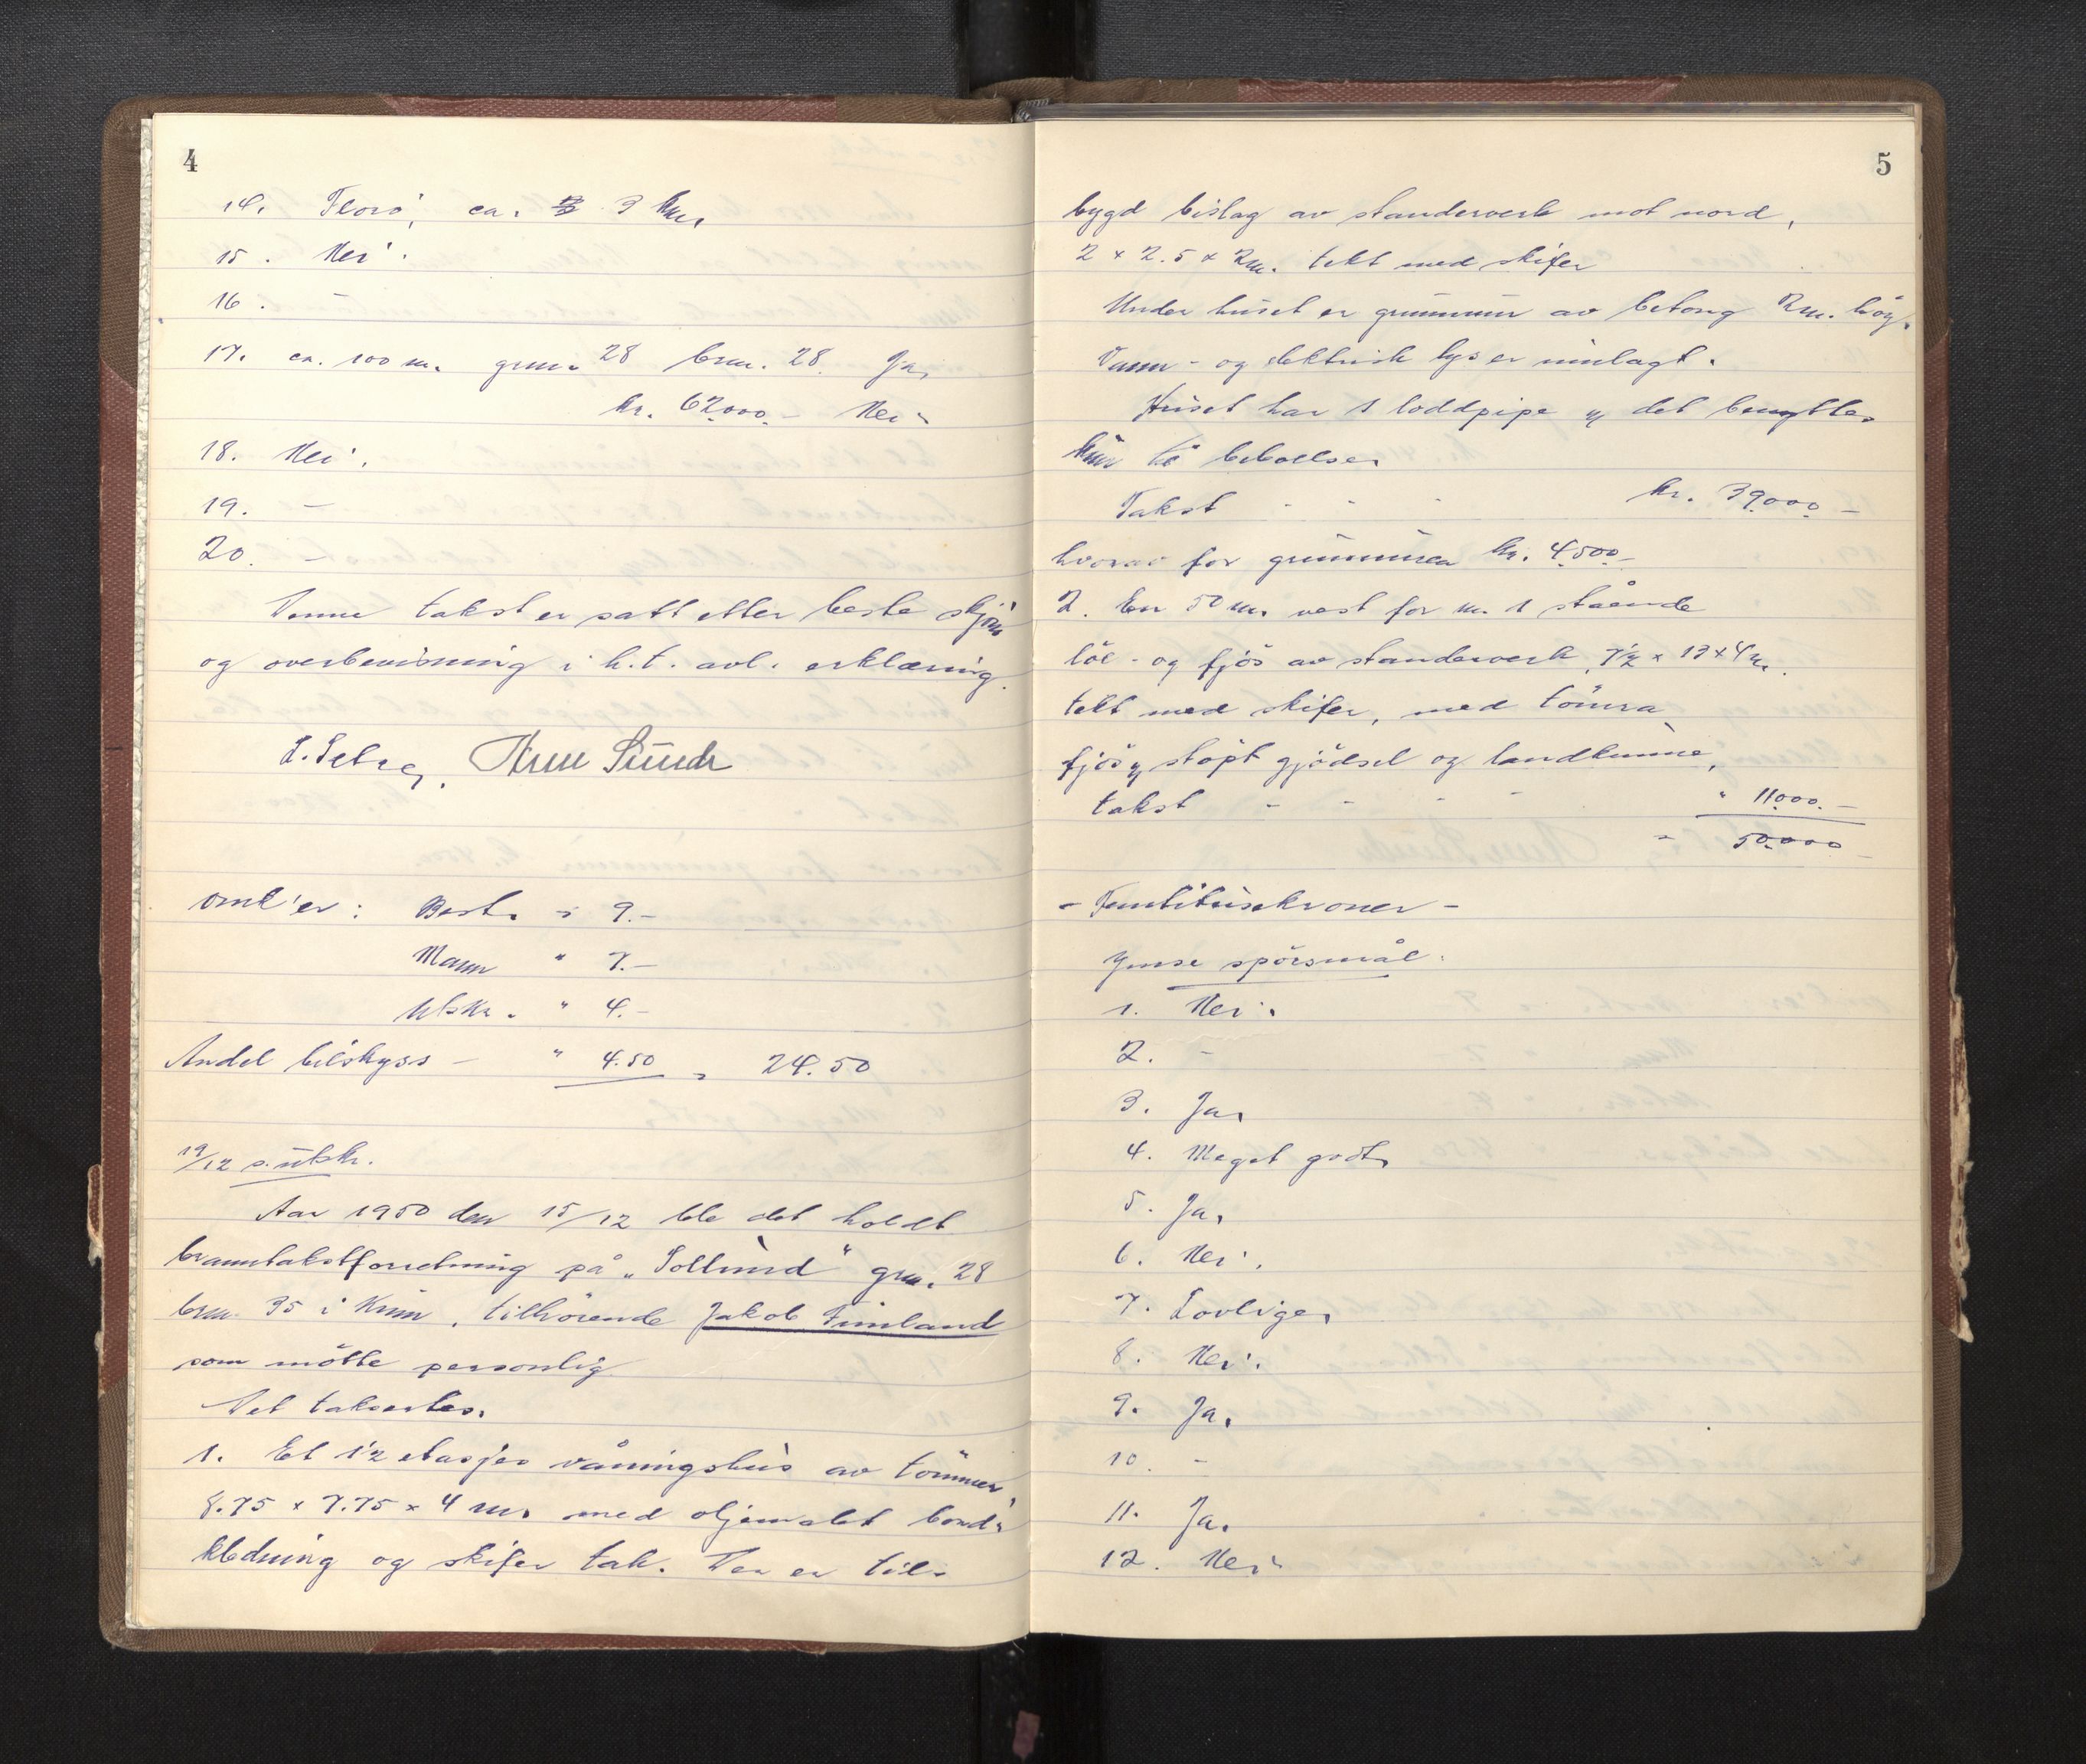 4
14. Florö, ca. 3 km.
15. Nei.
16. –
17. ca. 100 m. grm. 28 brm. 28. Ja.
kr. 62000.– Nei.
18. Nei.
19. –
20. –
Denne takst er satt etter beste skjøn
og overbevisning i h.t. avl. erklæring.
omk'er: Best. – 9.–
Mann " 7.–
Utskr. " 4.–
Andel bilskyss – " 4.50 = 24.50
19/12 s. utskr.
Aar 1950 den 15/12 ble det holdt
branntakstforretning på "Sollund" grm. 28
brm. 35 i Kinn, tilhörende Jakob Timland
som mötte personlig
Det taksertes.
1. Et 1½ etasjes våningshus av tömmer,
8.75 x 7.75 x 4 m. med oljemalt bord-
kledning og skifer tak. Der er til-
5
bygd bislag av standerverk mot nord,
2 x 2.5 x 2m. tekt med skifer
Under huset er grunnmur av betong 2m. høy.
Vann- og elektrisk lys er innlagt.
Huset har 1 loddpipe og det benyttes
kun til beboelse.
Takst - - - kr. 39000.–
hvorav for grunnmuren kr. 4500.–
2. En 50 m. vest for nr. 1 stående
löe- og fjös av standerverk, 7½ x 13 x 4 m.
tekt med skifer, med tömra
fjös og stöpt gjödsel og landkumme,
takst - - - - " 11000.–
" 50000.–
- Femtitusekroner -
Ymse spörsmål.
1. Nei.
2. –
3. Ja.
4. Meget godt.
5. Ja.
6. Nei.
7. Lovlige.
8. Nei.
9. Ja.
10. –
11. Ja.
12. Nei.